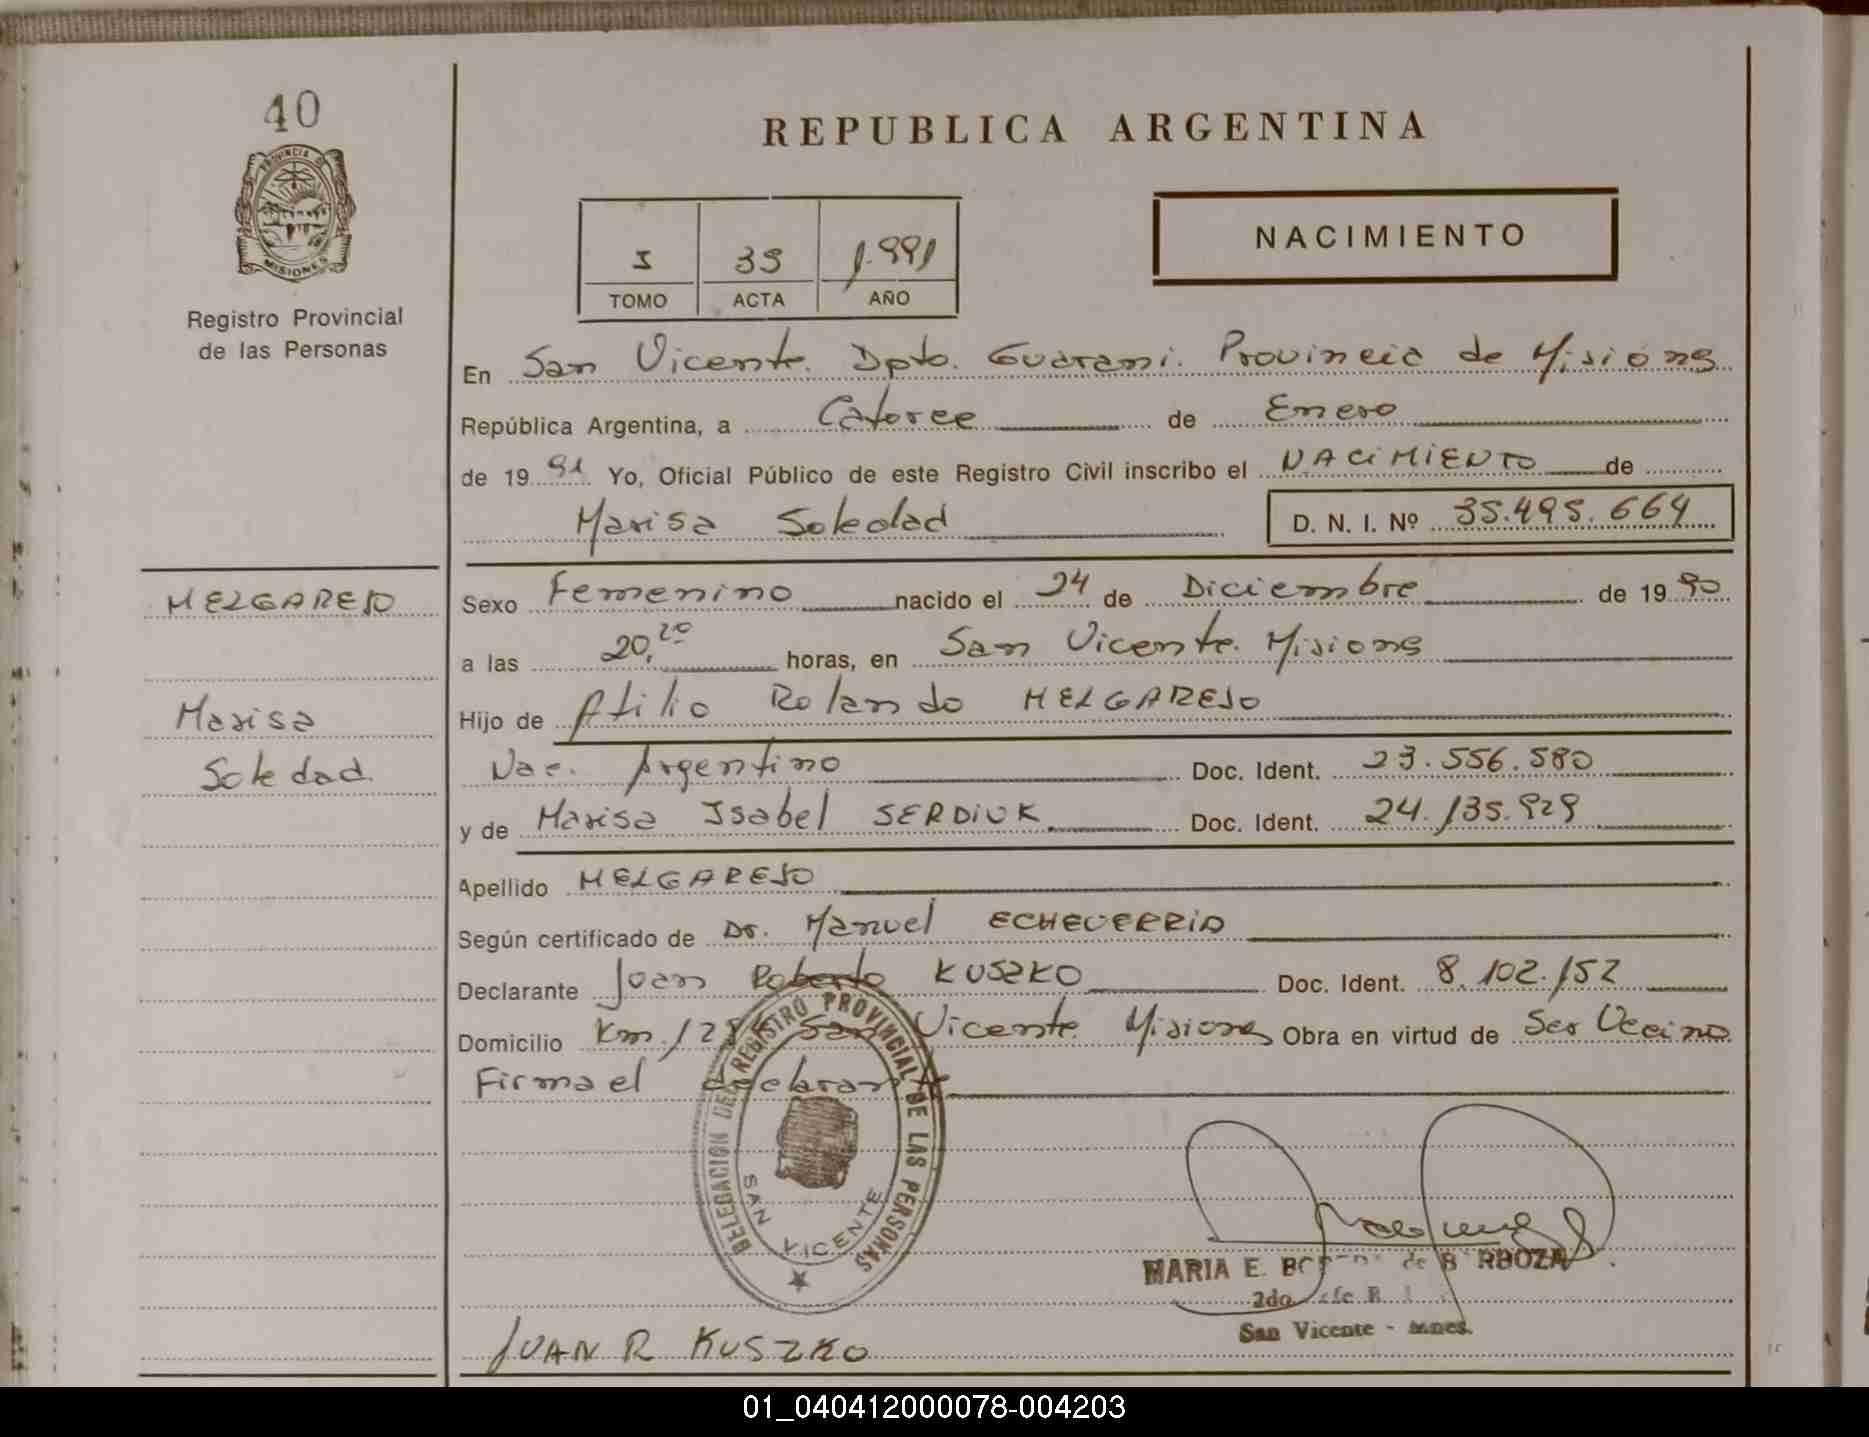 40
PROVINCIA DE
MISIONES
Registro Provincial
de las Personas
REPUBLICA ARGENTINA
I 39 1.991
TOMO ACTA AÑO
NACIMIENTO
En San Vicente. Dpto. Guarani. Provincia de Misiones
República Argentina, a Catorce de Enero
de 1991 Yo, Oficial Público de este Registro Civil inscribo el NACIMIENTO de
Marisa Soledad D. N. I. Nº 35.495.664
MELGAREJO
Marisa
Soledad
Sexo Femenino nacido el 24 de Diciembre de 1990
a las 20,20 horas, en San Vicente. Misiones
Hijo de Atilio Rolando MELGAREJO
Nac. Argentino Doc. Ident. 23.556.580
y de Marisa Isabel SERDIUK Doc. Ident. 24.135.929
Apellido MELGAREJO
Según certificado de Dr. Manuel ECHEVERRIA
Declarante Juan Roberto KUSZKO Doc. Ident. 8.102.152
Domicilio Km. San Vicente Misiones Obra en virtud de Ser Vecino
Firma el declarante
DELEGACION DEL REGISTRO PROVINCIAL DE LAS PERSONAS
SAN VICENTE
MARIA E. de BARBOZA
2do
San Vicente - Mnes.
JUAN R KUSZKO
01_040412000078-004203